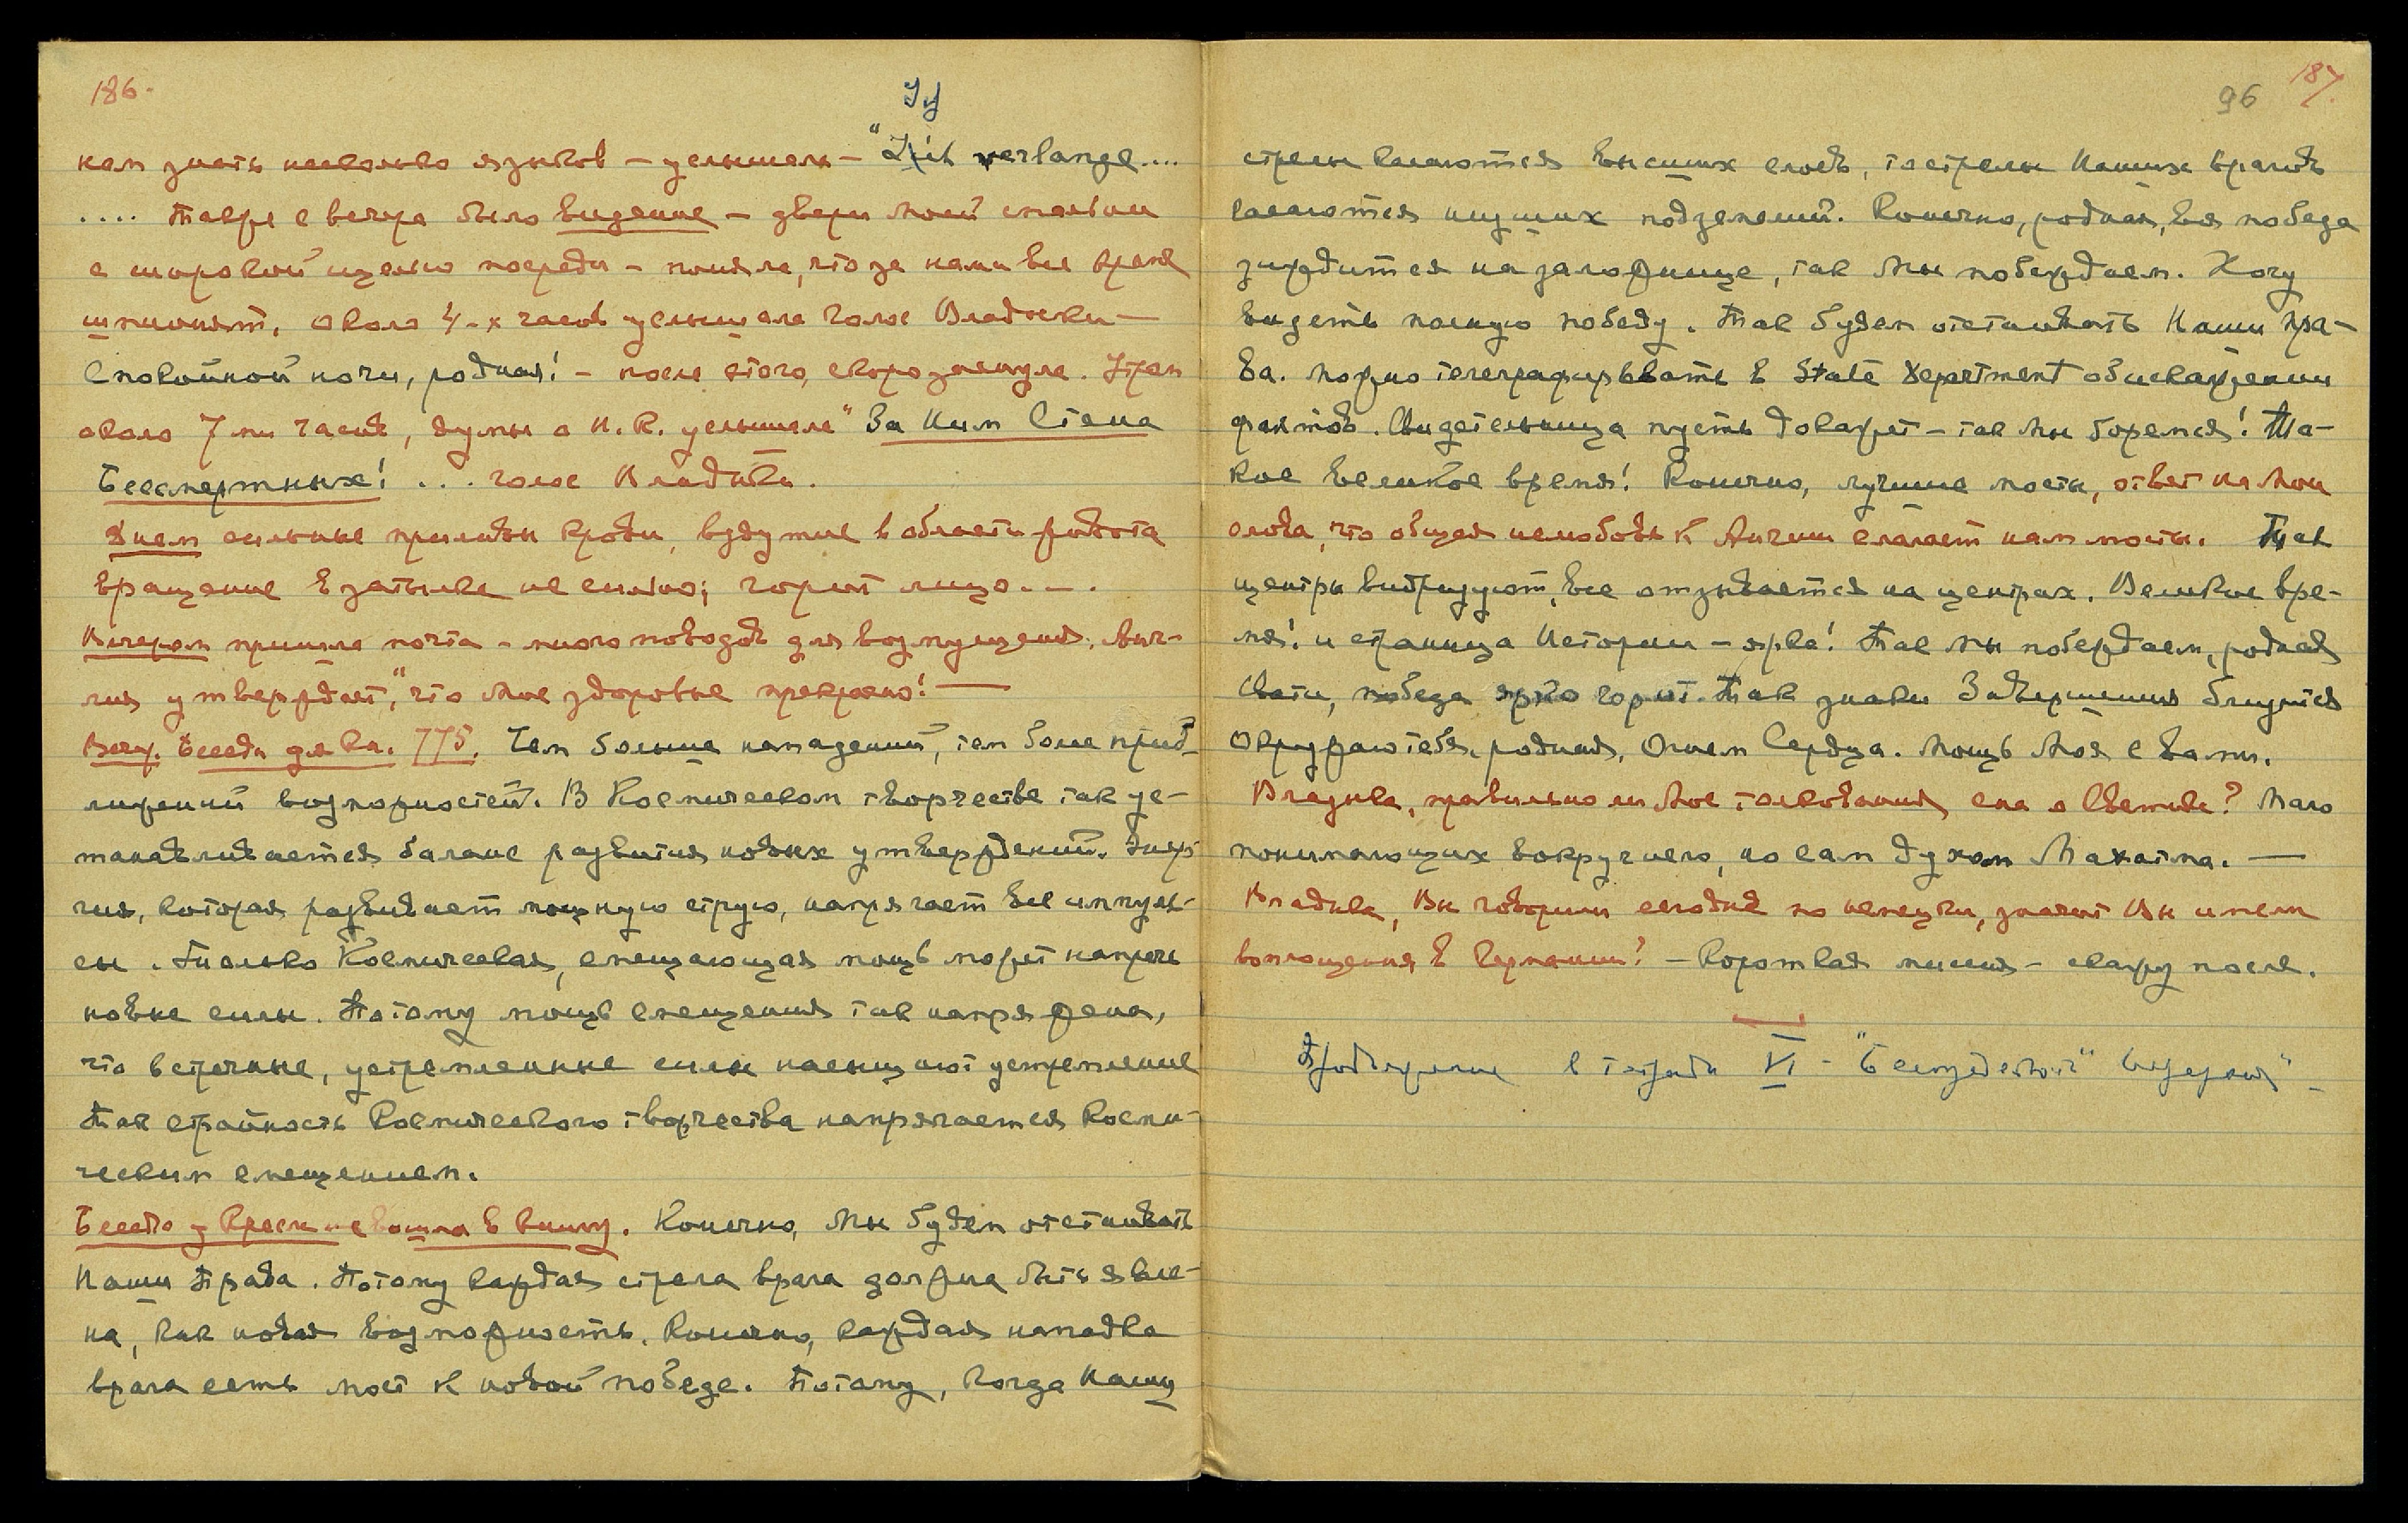 186.
кам знать несколько языков – услышала – "Ich verlange....
.... Также с вечера было видение – двери моей спальни
с широкой щелью посреди – поняла, что за нами все время
шпионят, около 4-х часов услышала голос Владыки –
Спокойной ночи, родная! – после этого, скоро заснула. Утром
около 7ми часов, думы о Н.К. услышала "За Ним Стена
Бессмертных! ... голос Владыки.
Днем сильные приливы крови, вздутие в области живота
вращение в затылке не сильно; горит лицо...
Вечером пришла почта – много поводов для возмущения. Анг-
лия утверждает, "что мое здоровье прекрасно! —
Веч. Беседа для Кн. 775. Чем больше нападений, тем более прибли-
женний возможностей. В Космическом творчестве так ус-
танавливается баланс развития новых утверждений. Энер-
гия, которая развивает мощную струю, напрягает все импуль-
сы. Только Космическая, смещающая мощь может напрячь
новые силы. Потому мощь смещения так напряжена,
что встречные, устремленные силы насыщают устремление
Так стройность Космического творчества напрягается Косми-
ческим смещением.
Беседа у кресла не вошла в книгу. Конечно, Мы будем отстаивать
Наши Права. Потому каждая стрела врага должна быть явле-
на, как новая возможность. Конечно, каждая нападка
врага есть мост к новой победе. Потому, когда Наши
96 187.
стрелы касаются высших слоев, то стрелы Наших врагов
касаются низших подземелий. Конечно, родная, вся победа
зиждится на залоге, так Мы побеждаем. Хочу
видеть полную победу. Так будем отстаивать Наши пра-
ва. Можно телеграфировать в State Department об искажении
фактов. Свидетельница пусть докажет – так Мы боремся! Та-
кое великое время! Конечно, лучшие мосты, ответ на Мои
слова, что общая нелюбовь к Англии слагает нам мосты. Так
центры вибрируют, все отзывается на центрах. Великое вре-
мя! и страница Истории – ярка! Так Мы побеждаем, родная
Свати, победа ярко горит. Так знаки Завершения близятся
Окружаю тебя, родная, Огнем Сердца. Мощь Моя с вами.
Владыка, правильно ли Мое толкование сна о Святике? Мало
понимающих вокруг него, но сам духом Махатма. —
Владыка, Вы говорили сегодня по немецки, значит Вы имели
воплощения в Германии? – Короткая миссия – скажу после.
Продолжение в тетради VI –